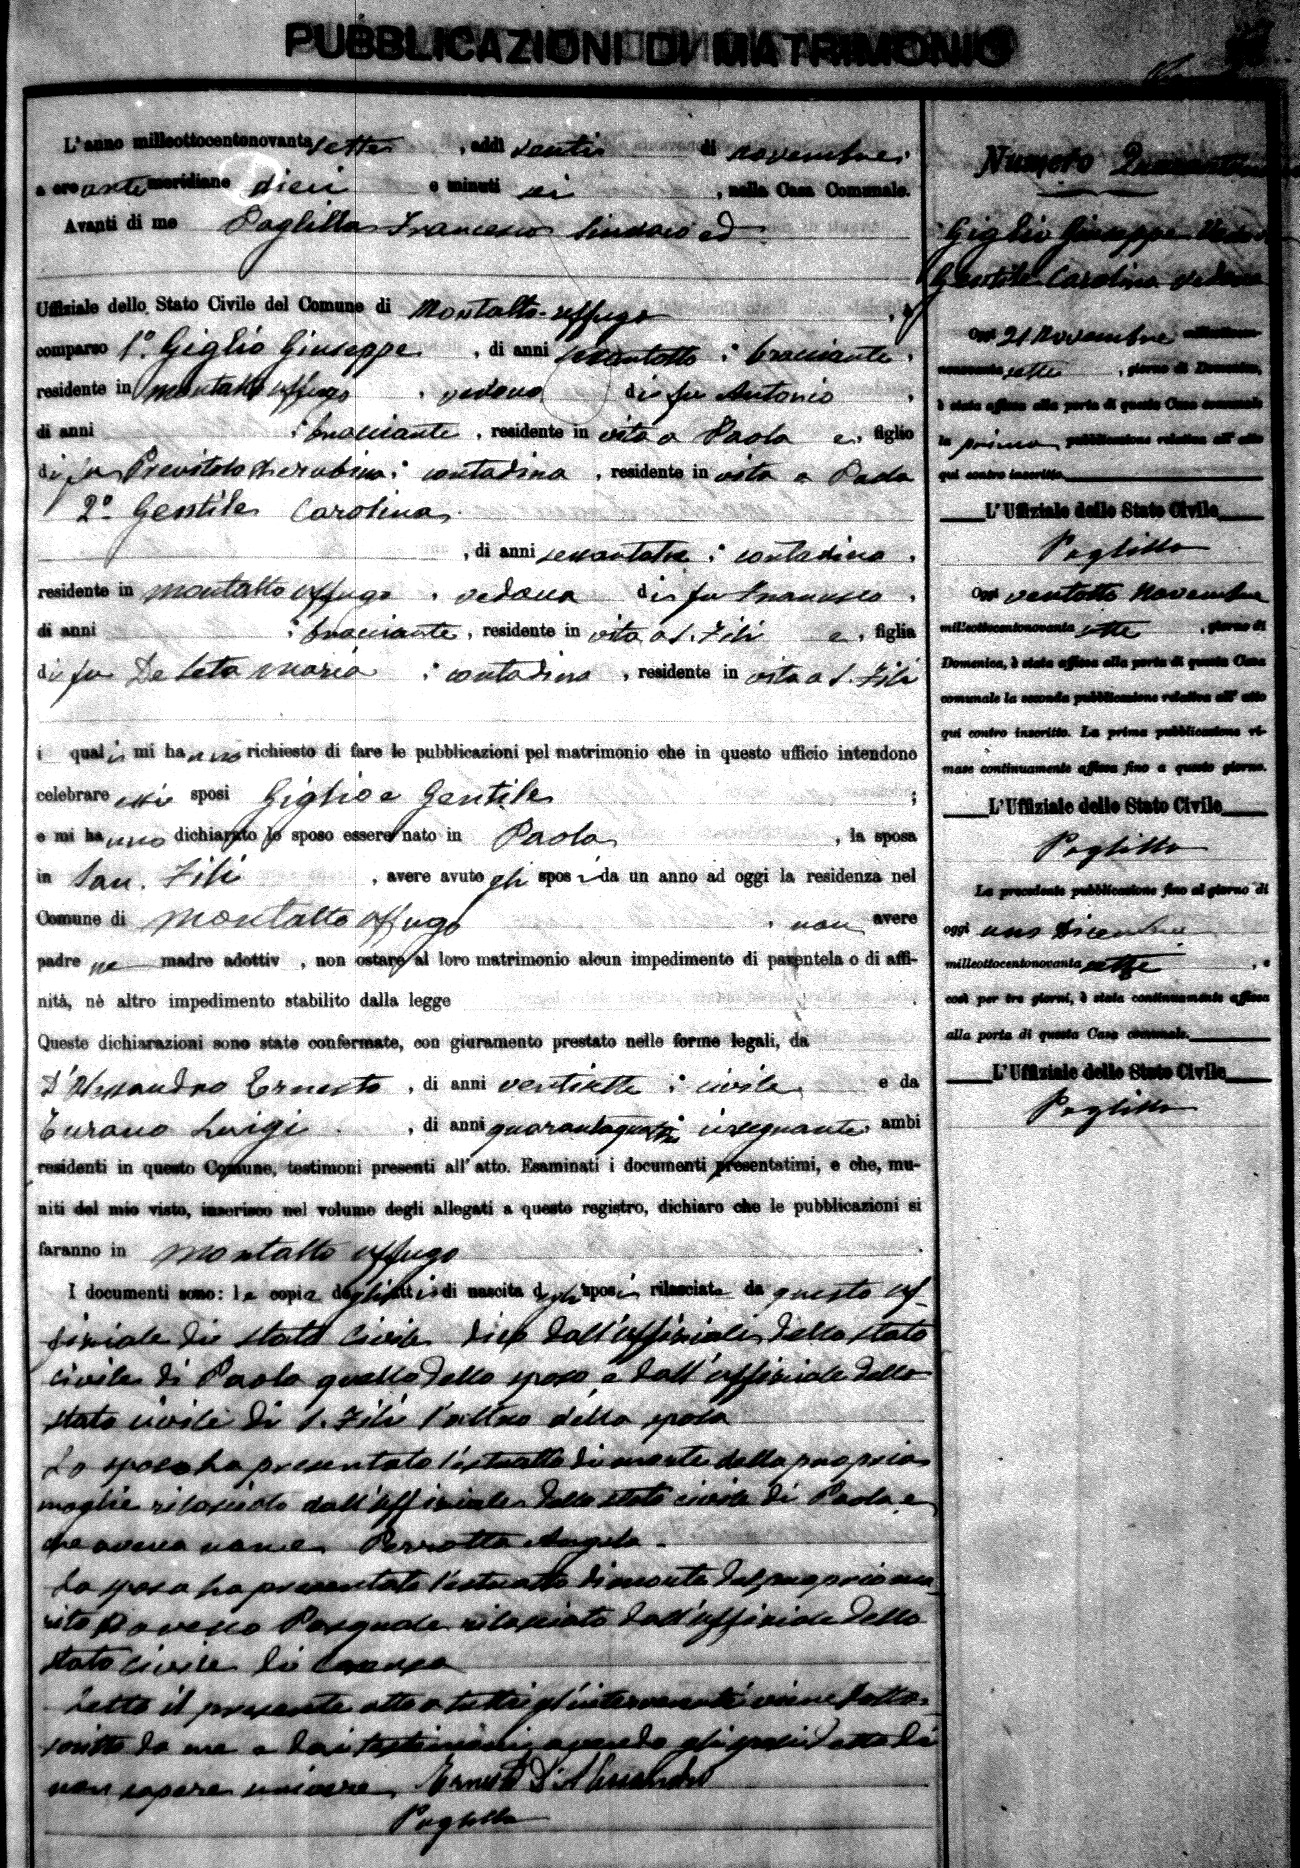 PUBBLICAZIONI DI MATRIMONIO
L'anno milleottocentonovanta sette, addì venti di novembre,
a ore ante meridiane dieci e minuti sei, nella Casa Comunale.
Avanti di me Paglilla Francesco Sindaco ed
Uffiziale dello Stato Civile del Comune di Montalto-uffugo,
comparso 1º. Giglio Giuseppe, di anni sessantotto; bracciante,
residente in montalto uffugo, vedovo di fu Antonio,
di anni ; bracciante, residente in vita a Paola e, figlio
di fu Previtolo Cherubina; contadina, residente in vita a Paola
2º Gentile Carolina
, di anni sessantatre; contadina,
residente in montalto uffugo, vedova di fu Francesco,
di anni ; bracciante, residente in vita a S. Fili e, figlia
di fu De Seta Maria; contadina, residente in vita a S. Fili
i quali mi hanno richiesto di fare le pubblicazioni pel matrimonio che in questo ufficio intendono
celebrare essi sposi Giglio e Gentile;
e mi hanno dichiarato lo sposo essere nato in Paola, la sposa
in San. Fili, avere avuto gli sposi da un anno ad oggi la residenza nel
Comune di Montalto uffugo, non avere
padre ne madre adottiv, non ostare al loro matrimonio alcun impedimento di parentela o di affi-
nità, nè altro impedimento stabilito dalla legge
Queste dichiarazioni sono state confermate, con giuramento prestato nelle forme legali, da
D'Alessandro Ernesto, di anni ventisette; civile e da
Turano Luigi, di anni insegnante ambi
residenti in questo Comune, testimoni presenti all'atto. Esaminati i documenti presentatimi, e che, mu-
niti del mio visto, inserisco nel volume degli allegati a questo registro, dichiaro che le pubblicazioni si
faranno in Montalto uffugo
I documenti sono: le copie degli atti di nascita degli sposi rilasciate da questo uf-
fiziale di stato civile dico dall'uffiziale dello stato
civile di Paola quello dello sposo e dall'uffiziale dello
stato civile di S. Fili l'altro della sposa
Lo sposo ha presentato l'estratto di morte della propria
moglie rilasciato dall'uffiziale dello stato civile di Paola e
che aveva nome Perrotta Angela.
La sposa ha presentato l'estratto di morte del proprio ma-
rito Pasquale rilasciato dall'uffiziale dello
stato civile di Cosenza
Letto il presente atto a tutti gl'intervenuti viene sotto-
scritto da me e dai testimoni, avendo gli sposi detto di
non sapere scrivere Ernesto D'Alessandro
Paglilla
Numero
Giglio Giuseppe Vedovo
Gentile Carolina vedova
Oggi 21 Novembre milleottocen-
tonovanta sette, giorno di Domenica,
è stata affissa alla porta di questa Casa comunale
la prima pubblicazione relativa all'atto
qui contro inscritto.
L'Uffiziale dello Stato Civile
Paglilla
Oggi ventotto Novembre
milleottocentonovanta sette, giorno di
Domenica, è stata affissa alla porta di questa Casa
comunale la seconda pubblicazione relativa all'atto
qui contro inscritto. La prima pubblicazione ri-
mase continuamente affissa fino a questo giorno.
L'Uffiziale dello Stato Civile
Paglilla
La precedente pubblicazione fino al giorno di
oggi uno Dicembre
milleottocentonovanta sette, e
così per tre giorni, è stata continuamente affissa
alla porta di questa Casa comunale.
L'Uffiziale dello Stato Civile
Paglilla